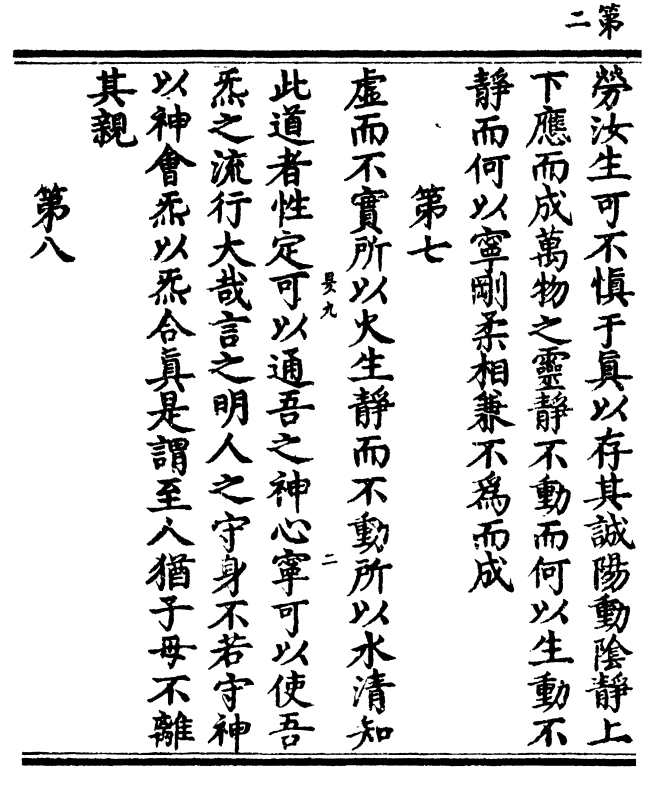 第二
勞汝生可不慎于真以存其誠陽動陰靜上
下應而成萬物之靈靜不動而何以生動不
靜而何以寧剛柔相兼不為而成
第七
虛而不實所以火生靜而不動所以水清知
㫷九
二
此道者性定可以通吾之神心寧可以使吾
炁之流行大哉言之明人之守身不若守神
以神會炁以炁合真是謂至人猶子母不離
其親
第八